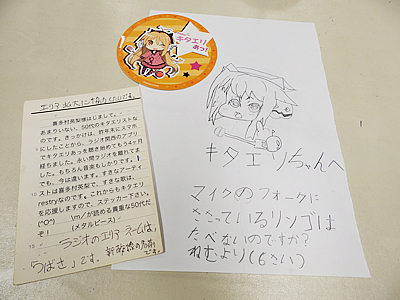 キタエリ
あっ!
エリア拡大に協力したいです。
喜多村英梨様はじめまして。
あまりいない、50代のキタエリストな
のです。きっかけは、昨年末にスマホ
にしたことから、ラジオ関西のアプリ
でキタエリあっを聴き始めてもう4ヶ月
経ちました。永い間ラジオを離れてま
した。もちろん音楽もしかりです。
でも、今は違います。すきなアーティ
ストは喜多村英梨で、すきな歌は、
restryなのです。これからもキタエリ
を応援しますので、ステッカー下さい。
(^O^) \m/が読める貴重な50代だ
ぞ! (メタルピース)
ラジオのエリアネームは、
「つばさ」です。
キタエリちゃんへ
マイクのフォークに
ささっているリンゴは
たべないのですか?
ねむより(6さい)